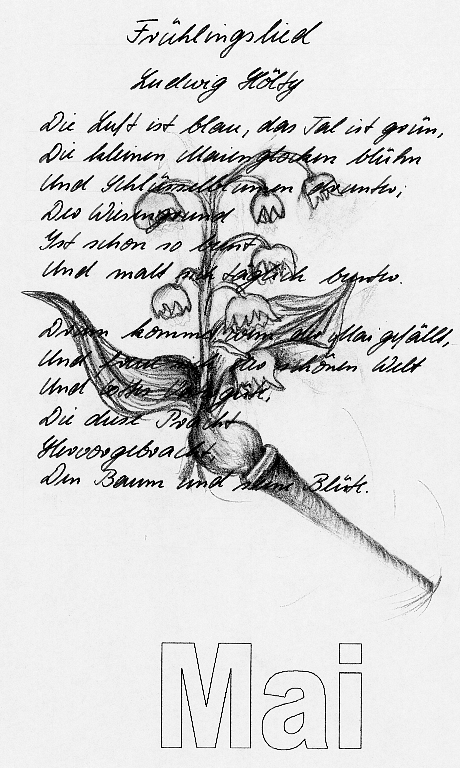 Frühlingslied
Ludwig Hölty
Die Luft ist blau, das Tal ist grün,
Die kleinen Maienglocken blühn
Und Schlüsselblumen drunter;
Der Wiesengrund
Ist schon so bunt
Und malt sich täglich bunter.
Drum komme, wem der Mai gefällt,
Und freue sich der schönen Welt
Und Gottes Vatergüte,
Die diese Pracht
Hervorgebracht,
Den Baum und seine Blüte.
Mai